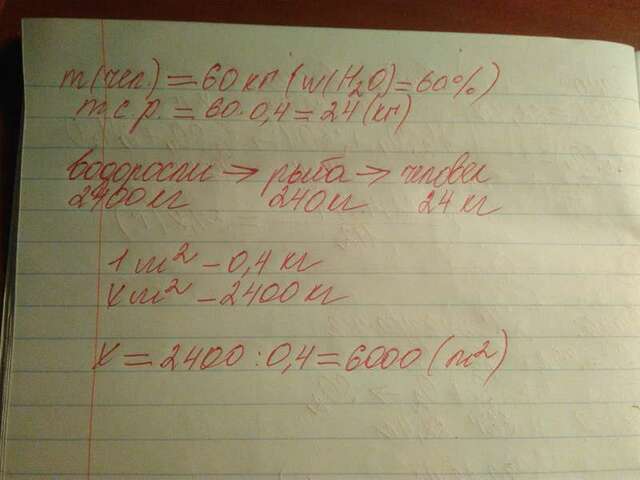 m(чел.) = 60 кг (w(H₂O) = 60%)
m с.р. = 60·0,4 = 24 (кг)
водоросли → рыба → человек
2400 кг 240 кг 24 кг
1 м² – 0,4 кг
x м² – 2400 кг
x = 2400 : 0,4 = 6000 (м²)